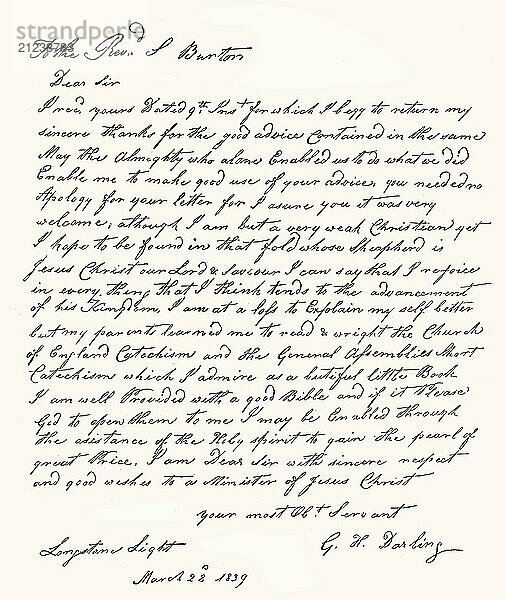 stramdfoto
2512397
To the Revd. S Burton
Dear Sir
I recd. yours Dated 9th. Inst for which I begg to return my
sincere thanks for the good advice Contained in the same
May the Almeghty who alone Enabled us to do what we did
Enable me to make good use of your advice, you needed no
Apology for your letter for I asure you it was very
welcome, although I am but a very weak Christian yet
I hope to be found in that fold whose Shepherd is
Jesus Christ our Lord & Saviour I can say that I rejoice
in every thing that I think tends to the advancement
of his Kingdom, I am at a loss to Explain my self better
but my parents learned me to read & wright the Church
of England Catechism and the General Assemblies Short
Catechism which I admire as a butiful little Book
I am well Provided with a good Bible and if it Please
God to open them to me I may be Enabled through
the asistance of the Holy spirit to gain the pearl of
great Price. I am Dear Sir with sincere respect
and good wishes to a Minister of Jesus Christ
your most Obt. Servant
Longstone Light G. H. Darling
March 22d 1839